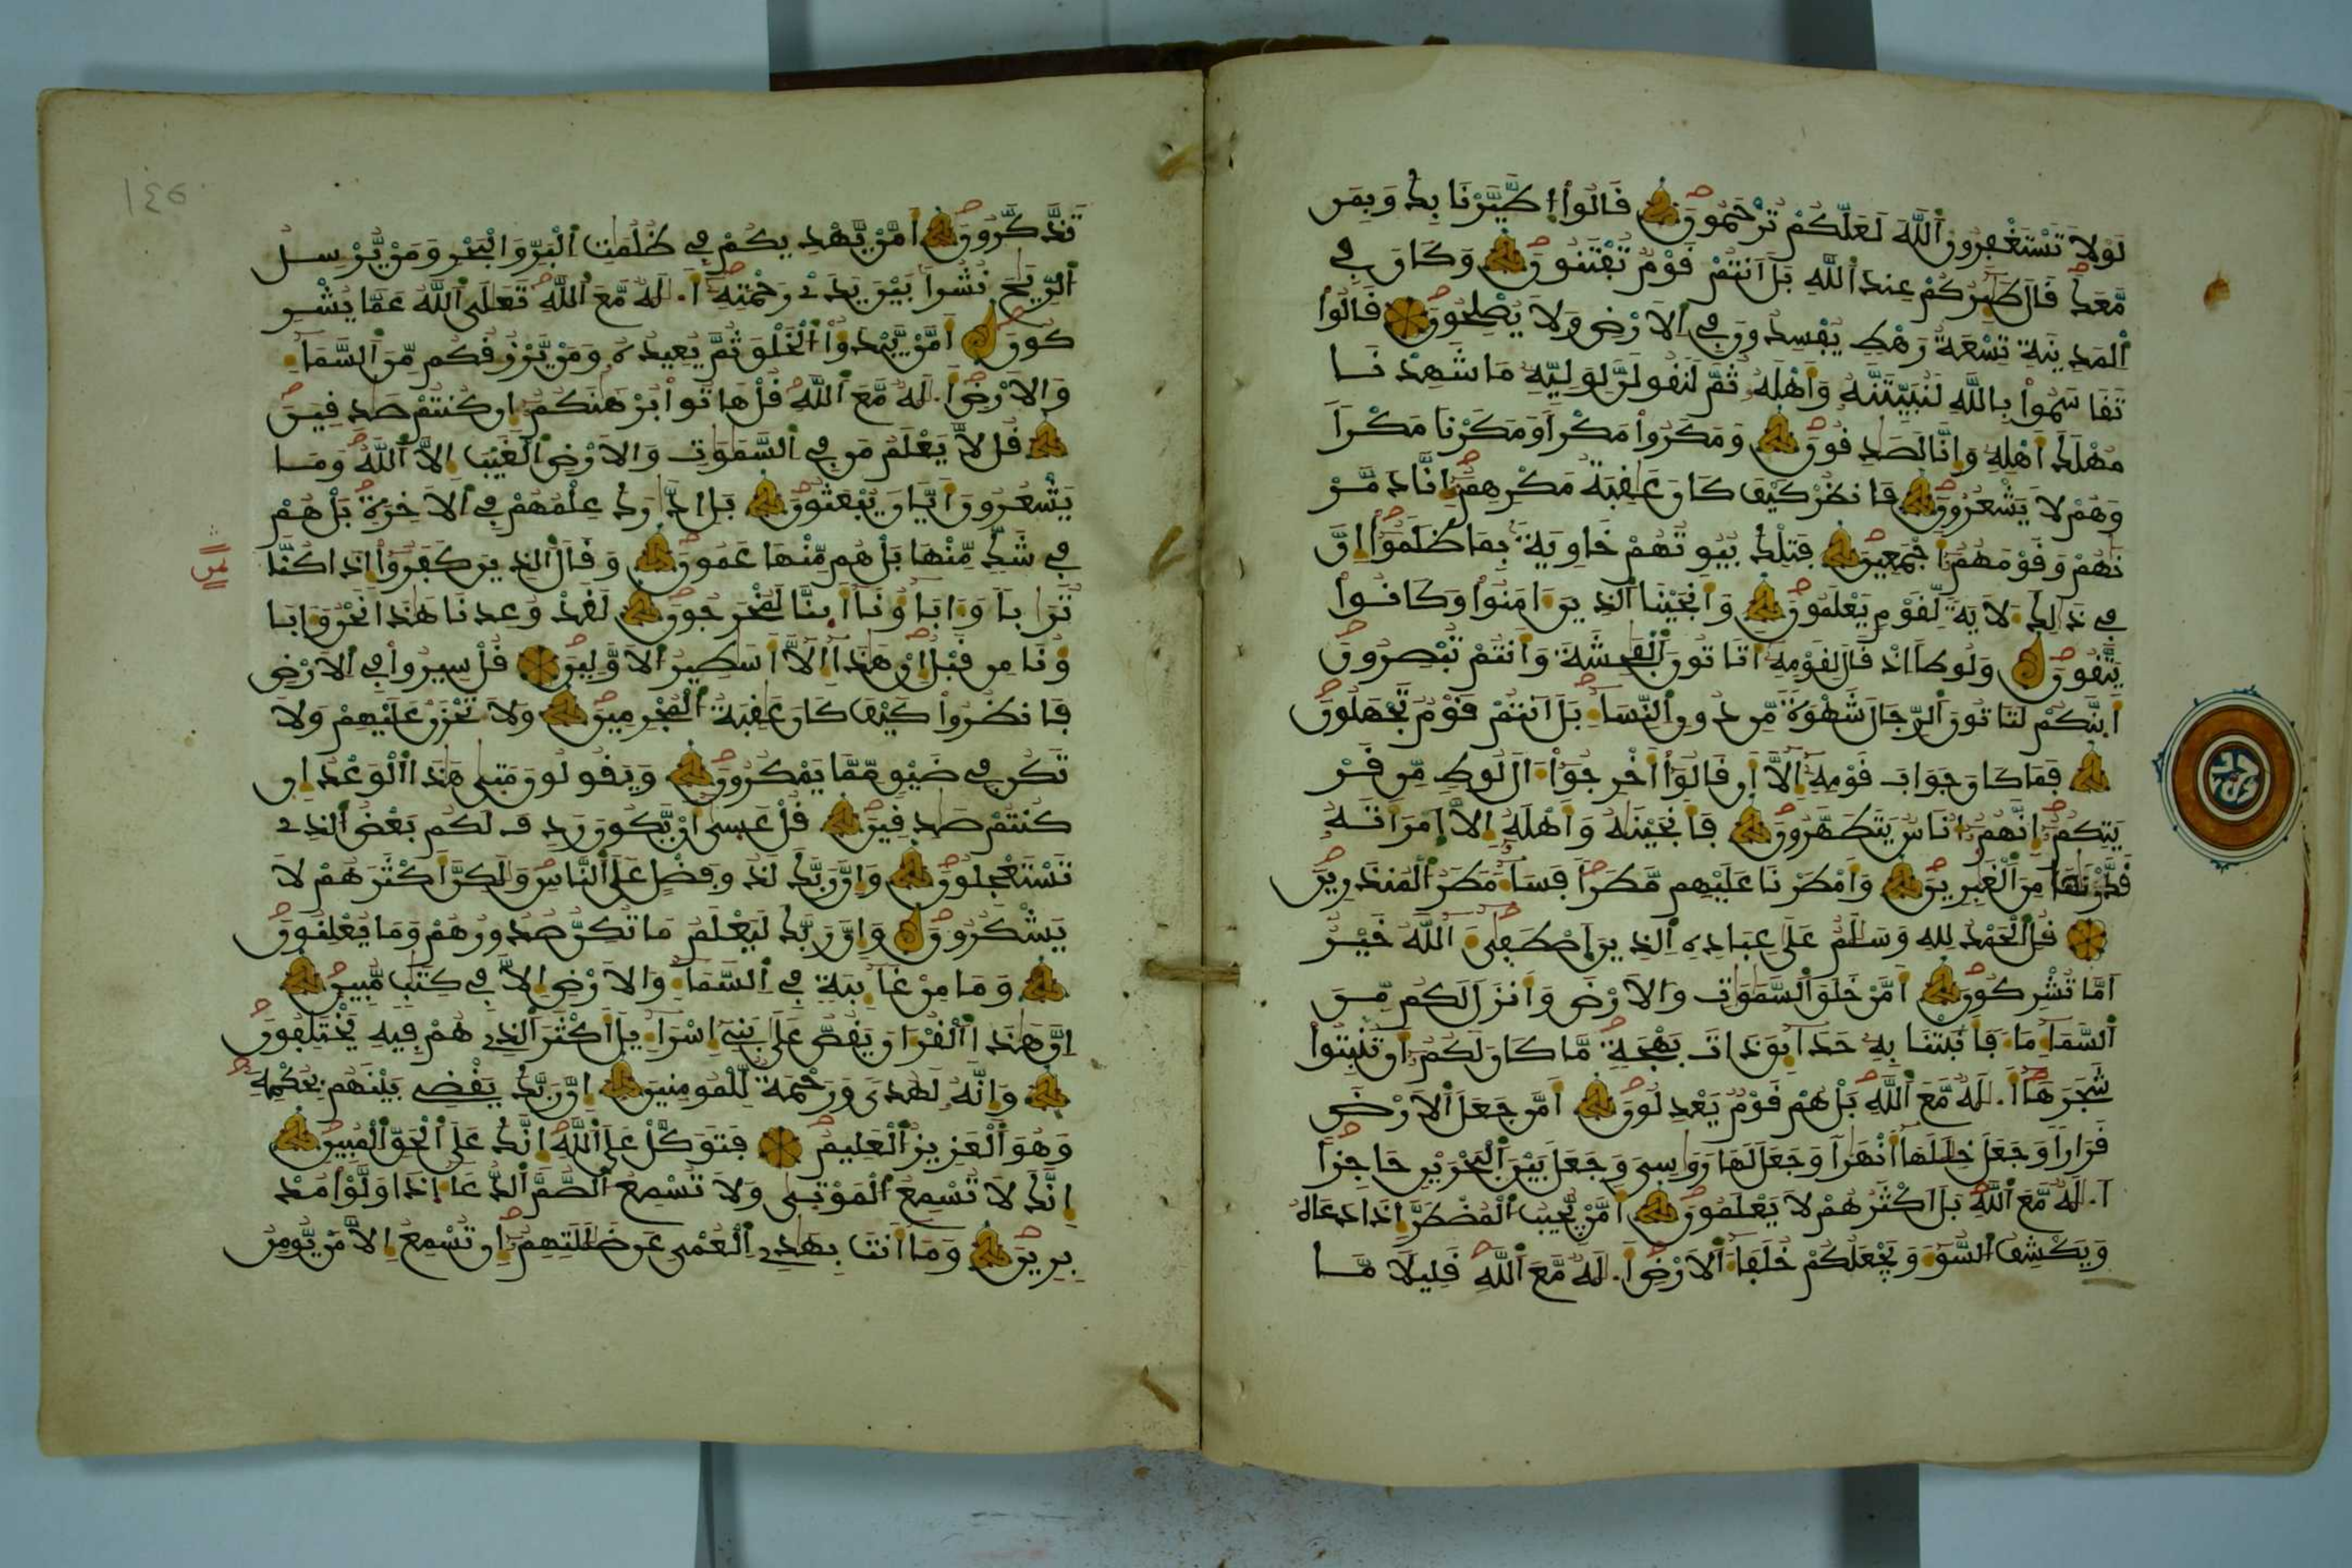 لَوْلَا تَسْتَغْفِرُونَ اَ۬للَّهَ لَعَلَّكُمْ تُرْحَمُونَ قَالُواْ اُ۪طَّيَّرْنَا بِكَ وَبِمَن
مَّعَكَ قَالَ طَٰٓئِرُكُمْ عِندَ اَ۬للَّهِ بَلَ اَنتُمْ قَوْمٌ تُفْتَنُونَ وَكَانَ فِي
اِ۬لْمَدِينَةِ تِسْعَةُ رَهْطٍ يُفْسِدُونَ فِي اِ۬لَارْضِ وَلَا يُصْلِحُونَ قَالُواْ
تَقَاسَمُواْ بِاللَّهِ لَنُبَيِّتَنَّهُ وَأَهْلَهُ ثُمَّ لَنَقُولَنَّ لِوَلِيِّهِ مَا شَهِدْنَا
مُهْلَكَ أَهْلِهِ وَإِنَّا لَصَٰدِقُونَ وَمَكَرُواْ مَكْراً وَمَكَرْنَا مَكْراً
وَهُمْ لَا يَشْعُرُونَ فَانظُرْ كَيْفَ كَانَ عَٰقِبَةُ مَكْرِهِمُ إِنَّا دَمَّرْ
نَٰهُمْ وَقَوْمَهُمُ أَجْمَعِينَ فَتِلْكَ بُيُوتُهُمْ خَاوِيَةً بِمَا ظَلَمُواْ إِنَّ
فِي ذَٰلِكَ لَأٓيَةً لِّقَوْمٍ يَعْلَمُونَ وَأَنجَيْنَا اَ۬لذِينَ ءَامَنُواْ وَكَانُواْ
يَتَّقُونَ وَلُوطاً اِذْ قَالَ لِقَوْمِهِ أَتَاتُونَ اَ۬لْفَٰحِشَةَ وَأَنتُمْ تُبْصِرُونَ
أَئِنَّكُمْ لَتَاتُونَ اَ۬لرِّجَالَ شَهْوَةً مِّن دُونِ اِ۬لنِّسَآءِ بَلَ اَنتُمْ قَوْمٌ تَجْهَلُونَ
فَمَا كَانَ جَوَابَ قَوْمِهِ إِلَّا أَن قَالُواْ أَخْرِجُواْ ءَالَ لُوطٍ مِّن قَرْ
يَتِكُمُ إِنَّهُمُ أُنَاسٌ يَتَطَهَّرُونَ فَأَنجَيْنَٰهُ وَأَهْلَهُ إِلَّا اَ۪مْرَأَتَهُ
قَدَّرْنَٰهَا مِنَ اَ۬لْغَٰبِرِينَ وَأَمْطَرْنَا عَلَيْهِم مَّطَراً فَسَآءَ مَطَرُ اُ۬لْمُنذَرِينَ
قُلِ اِ۬لْحَمْدُ لِلهِ وَسَلَٰمٌ عَلَىٰ عِبَادِهِ اِ۬لذِينَ اَ۪صْطَفَىٰ ءَآللَّهُ خَيْرٌ
اَمَّا تُشْرِكُونَ أَمَّنْ خَلَقَ اَ۬لسَّمَٰوَٰتِ وَالَارْضَ وَأَنزَلَ لَكُم مِّنَ
اَ۬لسَّمَآءِ مَآءً فَأَنۢبَتْنَا بِهِ حَدَآئِقَ ذَاتَ بَهْجَةٍ مَّا كَانَ لَكُمُ أَن تُنۢبِتُواْ
شَجَرَهَا أَ۟لَٰهٌ مَّعَ اَ۬للَّهِ بَلْ هُمْ قَوْمٌ يَعْدِلُونَ أَمَّن جَعَلَ اَ۬لَارْضَ
قَرَاراً وَجَعَلَ خِلَٰلَهَا أَنْهَٰراً وَجَعَلَ لَهَا رَوَٰسِيَ وَجَعَلَ بَيْنَ اَ۬لْبَحْرَيْنِ حَاجِزاً
أَ۟لَٰهٌ مَّعَ اَ۬للَّهِ بَلَ اَكْثَرُهُمْ لَا يَعْلَمُونَ أَمَّنْ يُّجِيبُ اُ۬لْمُضْطَرَّ إِذَا دَعَاهُ
وَيَكْشِفُ اُ۬لسُّوٓءَ وَيَجْعَلُكُمْ خُلَفَآءَ اَ۬لَارْضِ أَ۟لَٰهٌ مَّعَ اَ۬للَّهِ قَلِيلاً مَّا
١٤٥
تَذَّكَّرُونَ أَمَّنْ يَّهْدِيكُمْ فِي ظُلُمَٰتِ اِ۬لْبَرِّ وَالْبَحْرِ وَمَنْ يُّرْسِلُ
اُ۬لرِّيَٰحَ نُشُراً بَيْنَ يَدَيْ رَحْمَتِهِ أَ۟لَٰهٌ مَّعَ اَ۬للَّهِ تَعَٰلَى اَ۬للَّهُ عَمَّا يُشْرِ
كُونَ أَمَّنْ يَّبْدَؤُاْ اُ۬لْخَلْقَ ثُمَّ يُعِيدُهُ وَمَنْ يَّرْزُقُكُم مِّنَ اَ۬لسَّمَآءِ
وَالَارْضِ أَ۟لَٰهٌ مَّعَ اَ۬للَّهِ قُلْ هَاتُواْ بُرْهَٰنَكُمُ إِن كُنتُمْ صَٰدِقِينَ
قُل لَّا يَعْلَمُ مَن فِي اِ۬لسَّمَٰوَٰتِ وَالَارْضِ اِ۬لْغَيْبَ إِلَّا اَ۬للَّهُ وَمَا
يَشْعُرُونَ أَيَّانَ يُبْعَثُونَ بَلِ اِ۪دَّٰرَكَ عِلْمُهُمْ فِي اِ۬لَاخِرَةِ بَلْ هُمْ
فِي شَكٍّ مِّنْهَا بَلْ هُم مِّنْهَا عَمُونَ وَقَالَ اَ۬لذِينَ كَفَرُواْ إِذَا كُنَّا
ثمن
تُرَٰباً وَءَابَآؤُنَا أَئِنَّا لَمُخْرَجُونَ لَقَدْ وُعِدْنَا هَٰذَا نَحْنُ وَءَابَآ
ؤُنَا مِن قَبْلُ إِنْ هَٰذَا إِلَّا أَسَٰطِيرُ اُ۬لَاوَّلِينَ قُلْ سِيرُواْ فِي اِ۬لَارْضِ
فَانظُرُواْ كَيْفَ كَانَ عَٰقِبَةُ اُ۬لْمُجْرِمِينَ وَلَا تَحْزَنْ عَلَيْهِمْ وَلَا
تَكُن فِي ضَيْقٍ مِّمَّا يَمْكُرُونَ وَيَقُولُونَ مَتَىٰ هَٰذَا اَ۬لْوَعْدُ إِن
كُنتُمْ صَٰدِقِينَ قُلْ عَسَىٰ أَنْ يَّكُونَ رَدِفَ لَكُم بَعْضُ اُ۬لذِي
تَسْتَعْجِلُونَ وَإِنَّ رَبَّكَ لَذُو فَضْلٍ عَلَى اَ۬لنَّاسِ وَلَٰكِنَّ أَكْثَرَهُمْ لَا
يَشْكُرُونَ وَإِنَّ رَبَّكَ لَيَعْلَمُ مَا تُكِنُّ صُدُورُهُمْ وَمَا يُعْلِنُونَ
وَمَا مِنْ غَآئِبَةٍ فِي اِ۬لسَّمَآءِ وَالَارْضِ إِلَّا فِي كِتَٰبٍ مُّبِينٍ
إِنَّ هَٰذَا اَ۬لْقُرْءَانَ يَقُصُّ عَلَىٰ بَنِي إِسْرَآءِيلَ أَكْثَرَ اَ۬لذِي هُمْ فِيهِ يَخْتَلِفُونَ
وَإِنَّهُ لَهُدىً وَرَحْمَةٌ لِّلْمُومِنِينَ إِنَّ رَبَّكَ يَقْضِي بَيْنَهُم بِحُكْمِهِ
وَهُوَ اَ۬لْعَزِيزُ اُ۬لْعَلِيمُ فَتَوَكَّلْ عَلَى اَ۬للَّهِ إِنَّكَ عَلَى اَ۬لْحَقِّ اِ۬لْمُبِينِ
إِنَّكَ لَا تُسْمِعُ اُ۬لْمَوْتَىٰ وَلَا تُسْمِعُ اُ۬لصُّمَّ اَ۬لدُّعَآءَ إِذَا وَلَّوْاْ مُدْ
بِرِينَ وَمَا أَنتَ بِهَٰدِي اِ۬لْعُمْيِ عَن ضَلَٰلَتِهِمُ إِن تُسْمِعُ إِلَّا مَنْ يُّومِنُ